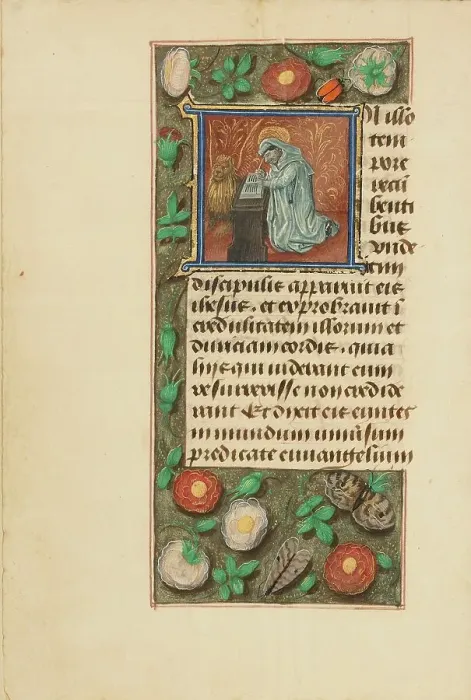 N illo
tem
pore
recū
benti
bus
vnde
cim
discipulis apparuit eis
ihesus . et exprobrauit ī
credulitatem illorum et
duriciam cordis . quia
hijs qui uiderant eum
resurrexisse non credide
rant Et dixit eis euntes
in mundum uniūsum
predicate euuangelium